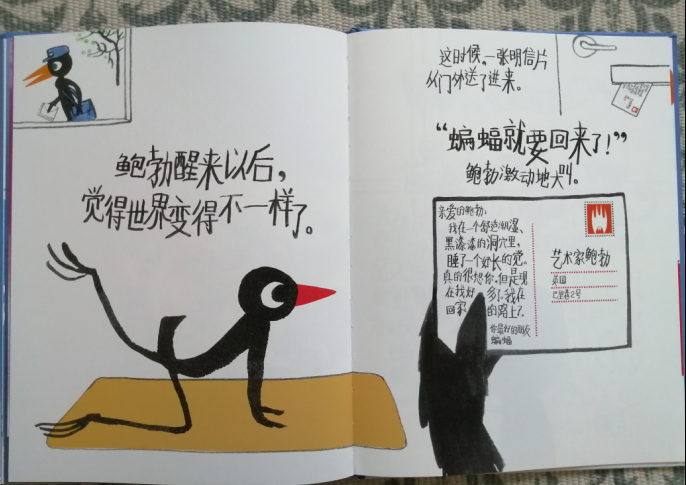 鲍勃醒来以后，
觉得世界变得不一样了。
这时候，一张明信片
从门外送了进来。
“蝙蝠就要回来了！”
鲍勃激动地大叫。
亲爱的鲍勃：
我在一个舒适潮湿、
黑漆漆的洞穴里，
睡了一个好长的觉。
真的很想你。但是现
在我好 多了，我在
回家 的路上了。
你最好的朋友
蝙蝠
艺术家鲍勃
英国